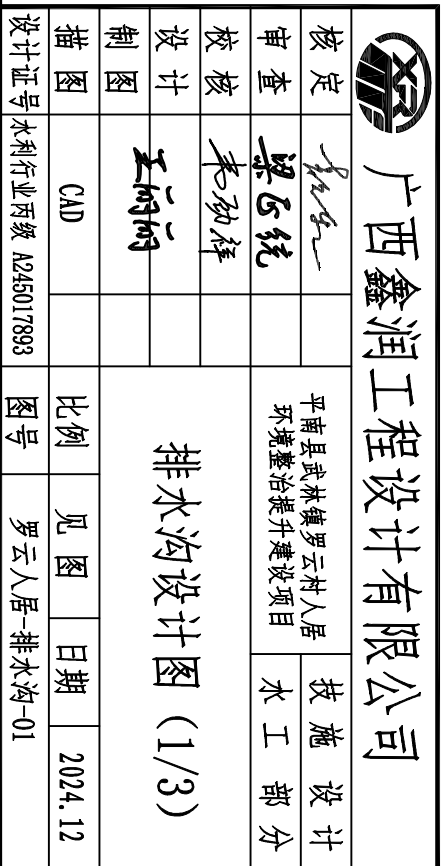 XR
广西鑫润工程设计有限公司
核定
平南县武林镇罗云村人居
环境整治提升建设项目
技施 设计
审查 梁正统
水工 部分
校核
排水沟设计图 (1/3)
设计 王丽丽
制图
描图 CAD
比例 见图 日期 2024.12
设计证号 水利行业丙级 A245017893
图号 罗云人居-排水沟-01